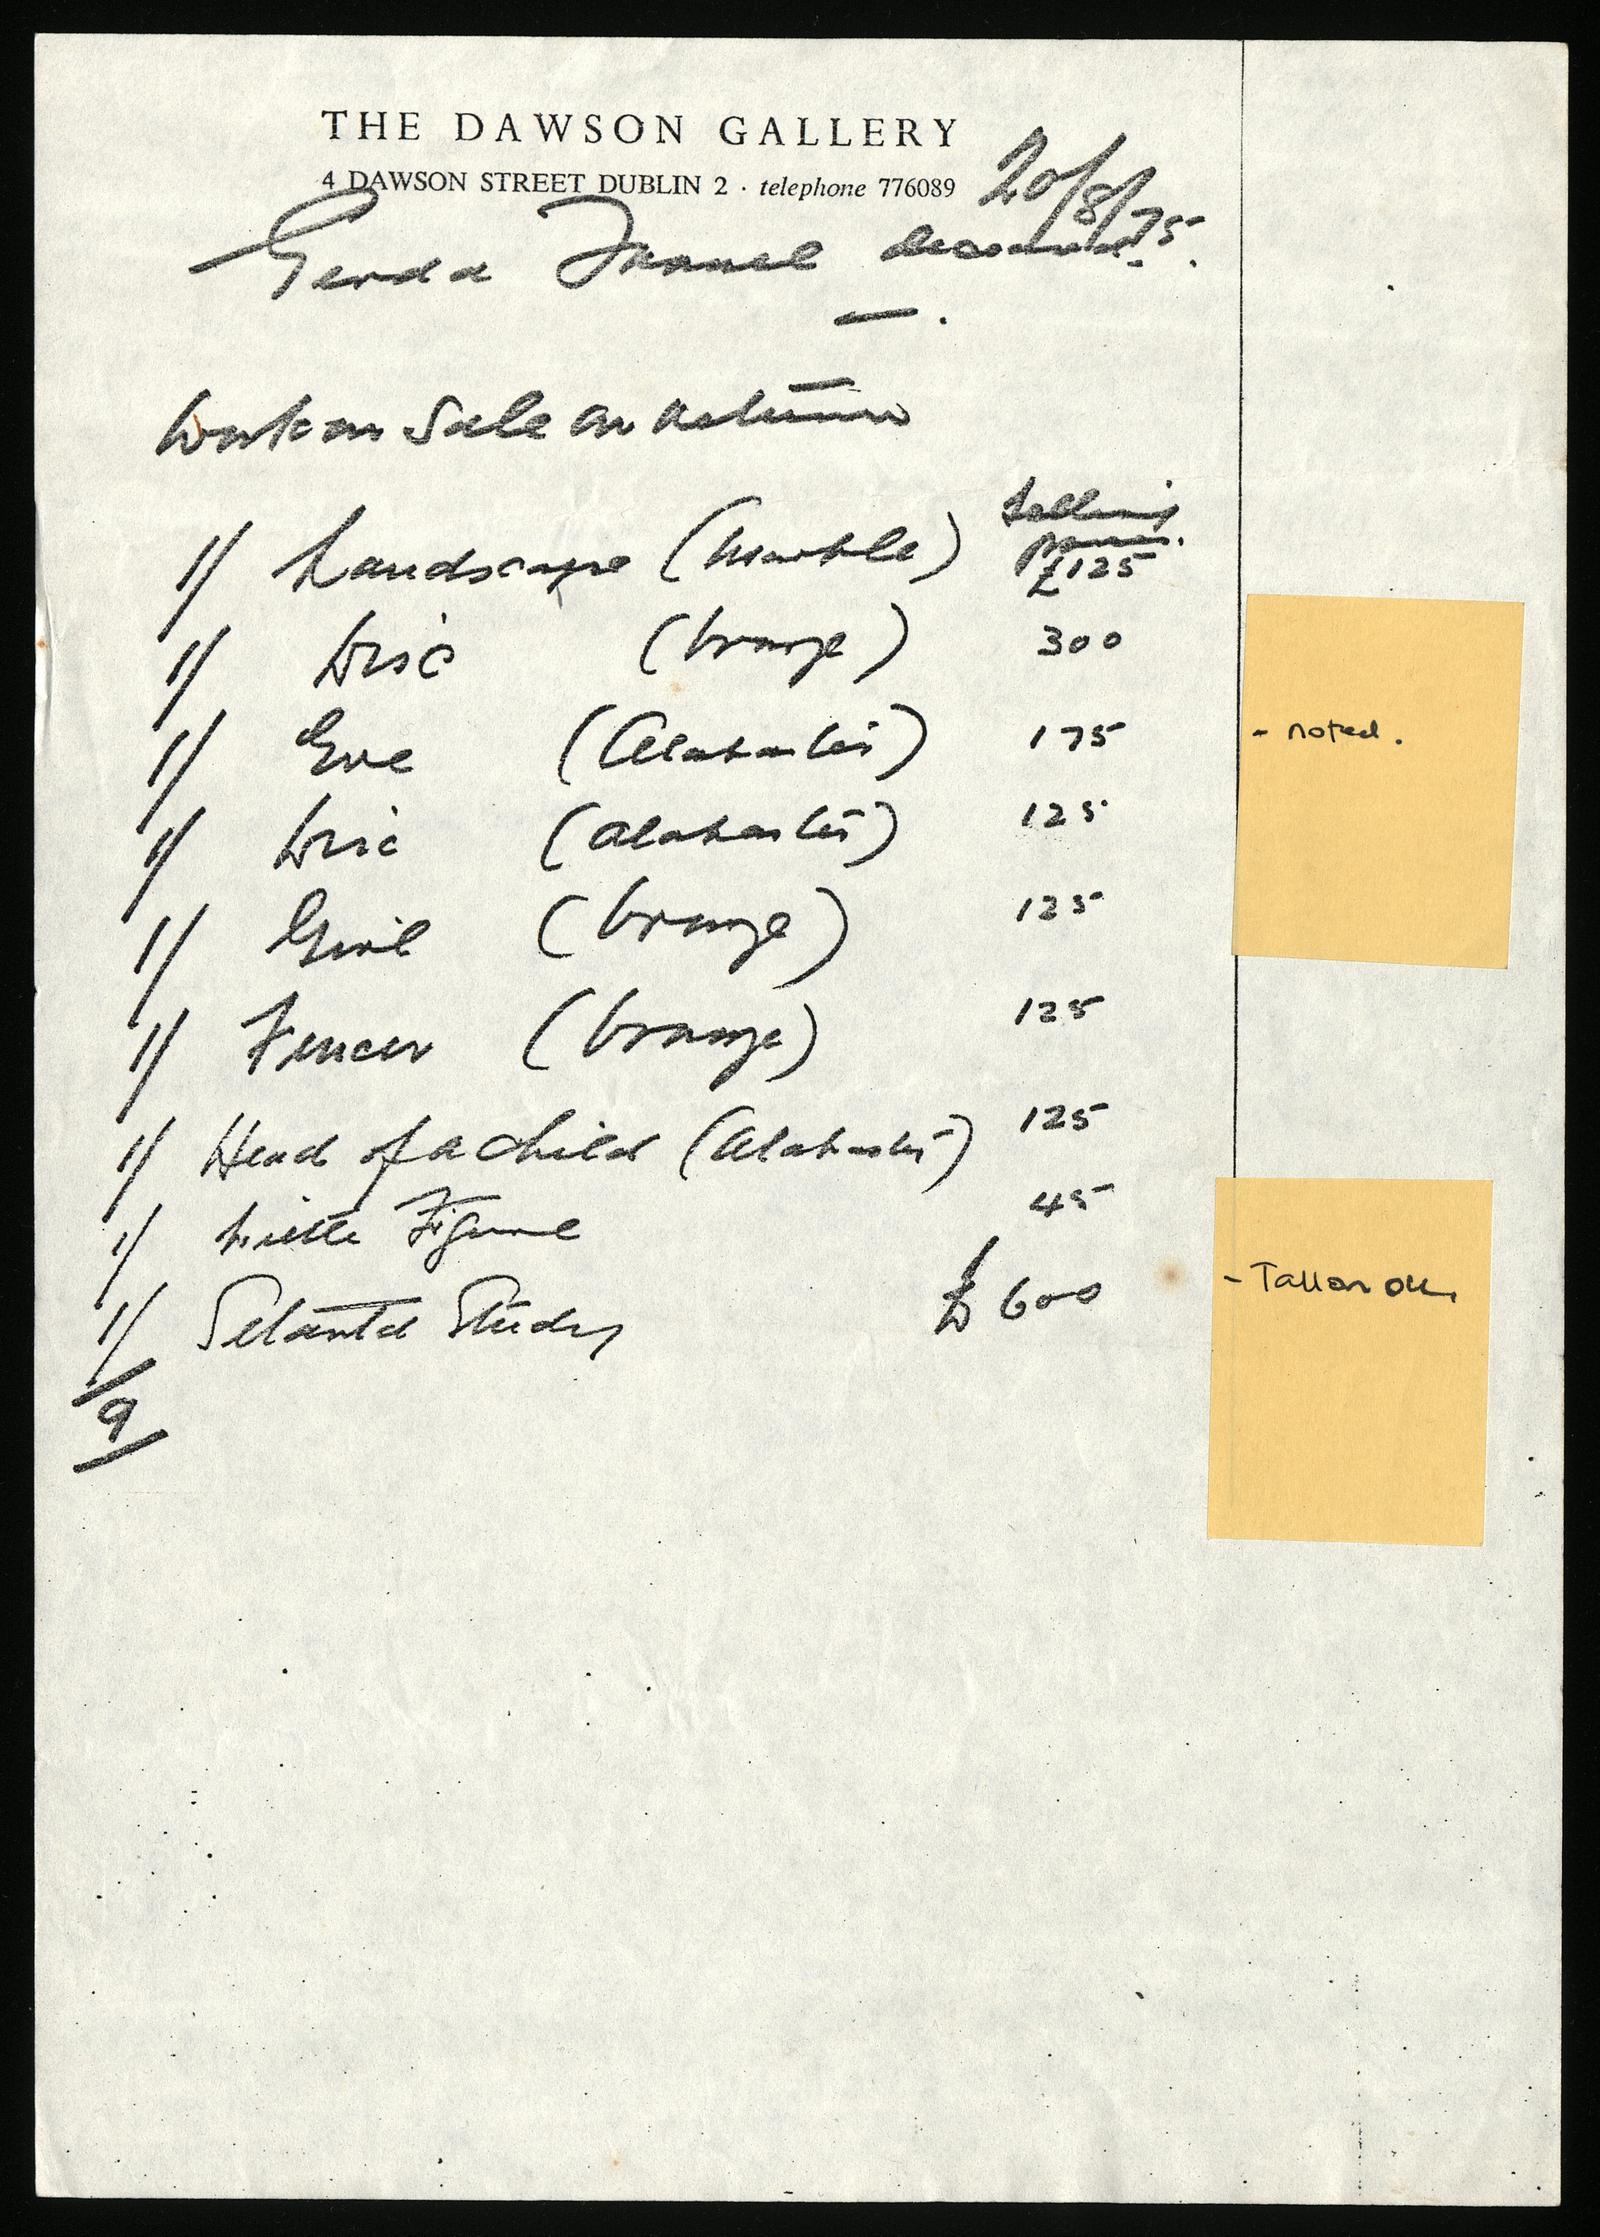 THE DAWSON GALLERY
4 DAWSON STREET DUBLIN 2 · telephone 776089
20/8/75.
Gerda Frömel deceased.
Work on Sale or Return
Selling
price.
1/ Landscape (Marble) £125
1/ Disc (bronze) 300
1/ Eve (Alabaster) 175
- noted.
1/ Disc (alabaster) 125
1/ Girl (bronze) 125
1/ Fencer (bronze) 125
1/ Head of a child (Alabaster) 125
1/ Little Figure 45
1/ Setanta Study £600
- Tallon
9